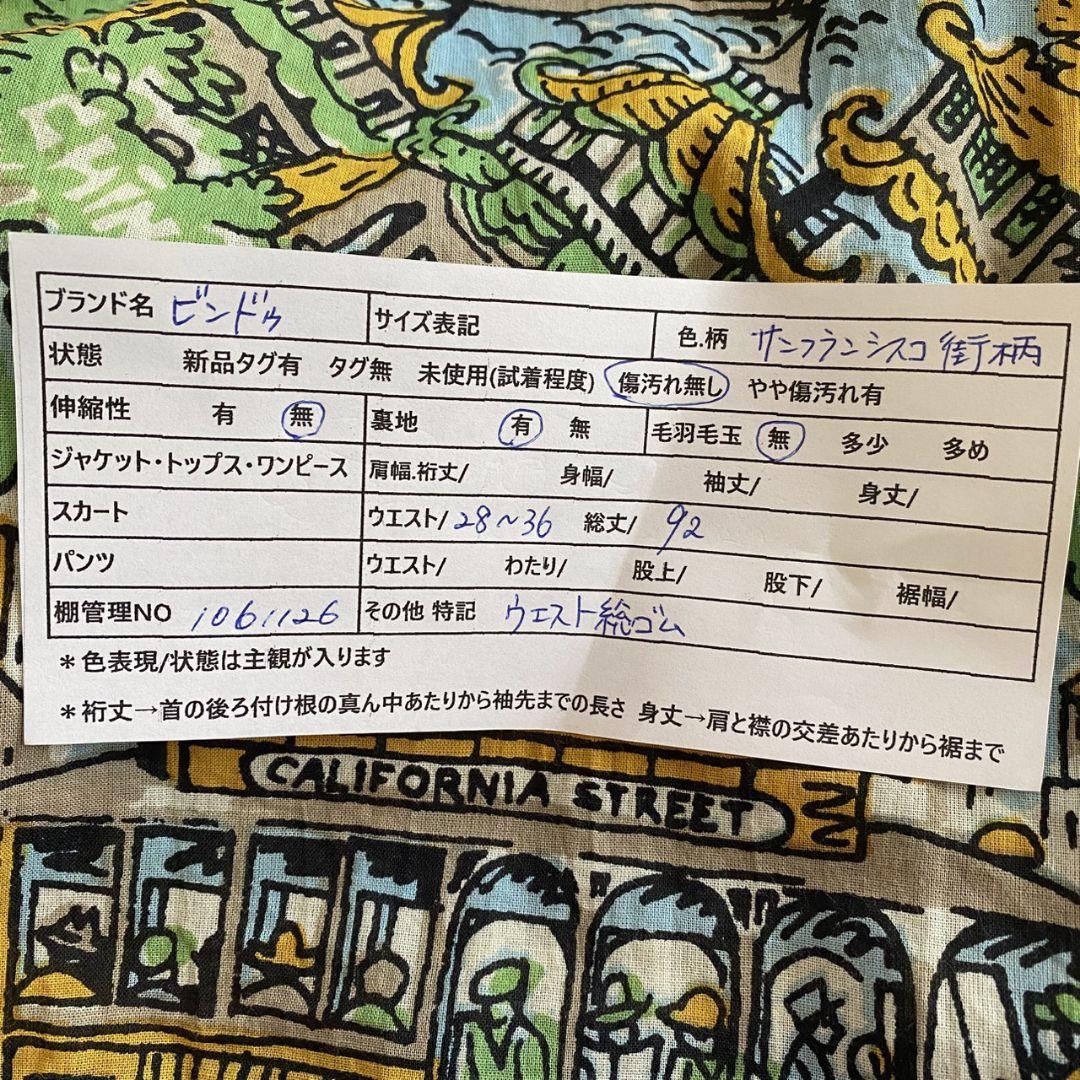 ブランド名 ビンドゥ サイズ表記 色.柄 サンフランシスコ街柄
状態 新品タグ有 タグ無 未使用(試着程度) 傷汚れ無し やや傷汚れ有
伸縮性 有 無 裏地 有 無 毛羽毛玉 無 多少 多め
ジャケット・トップス・ワンピース 肩幅.裄丈/ 身幅/ 袖丈/ 身丈/
スカート ウエスト/ 28~36 総丈/ 92
パンツ ウエスト/ わたり/ 股上/ 股下/ 裾幅/
棚管理NO 1061126 その他 特記 ウエスト総ゴム
*色表現/状態は主観が入ります
*裄丈→首の後ろ付け根の真ん中あたりから袖先までの長さ 身丈→肩と襟の交差あたりから裾まで
CALIFORNIA STREET